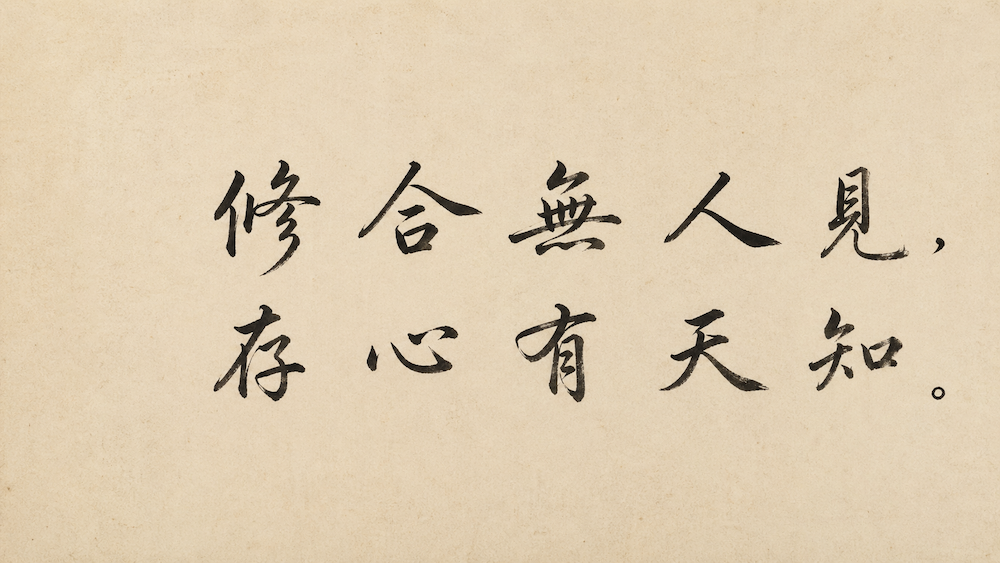 修合無人見，
存心有天知。